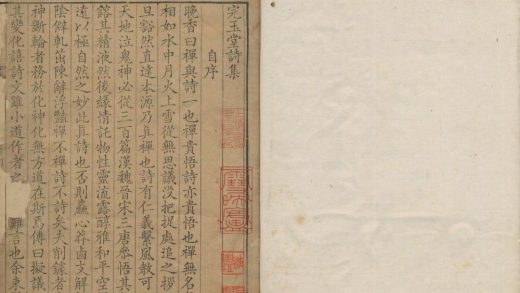 完玉堂詩集
自序
晚香曰禪與詩一也禪貴悟詩亦貴悟也禪無名
相如水中月火上雪從無思議沒把捉處追之拶
且豁然直達本源乃真禪也詩有仁義繫風教可
天地泣鬼神必從三百篇漢魏晉宋三唐參悟其
鎔其精液然後緣情託物性靈流露醇雅和平空
遠以極自然之妙此真詩也否則麤心莽鹵文解
陰僻軌茁陳辭浮豔禪不禪詩不詩矣夫削鐻者
神斵輪者務於化神化無方道在斯焉傳曰擬議
其變化語詩文雖小道作者
難言也余束